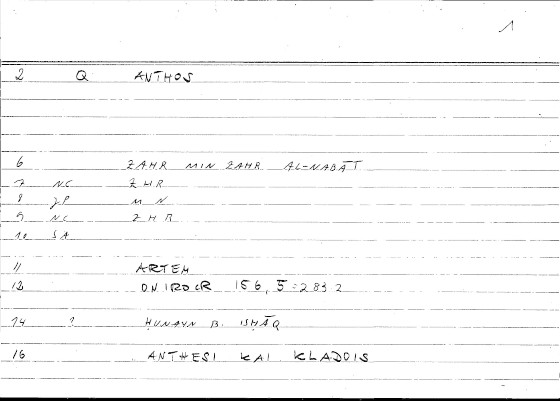 1
2 Q ANTHOS
6 ZAHR MIN ZAHR AL-NABĀT
7 NC ZHR
8 JP MN
9 NC ZHR
10 SA
11 ARTEM
13 ONIROCR 156, 5 = 283 2
14 1 ḤUNAYN B. ISḤĀQ
16 ANTHESI KAI KLADOIS